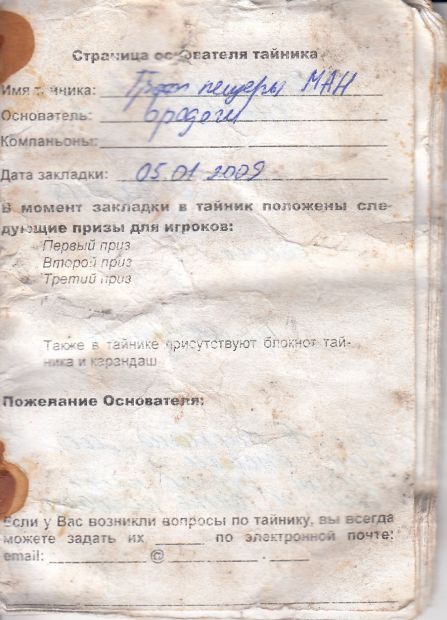 Страница основателя тайника
Имя тайника: Грот пещеры МАН
Основатель: бродяги
Компаньоны:
Дата закладки: 05.01.2009
В момент закладки в тайник положены сле-
дующие призы для игроков:
Первый приз
Второй приз
Третий приз
Также в тайнике присутствуют блокнот тай-
ника и карандаш
Пожелание Основателя:
Если у Вас возникли вопросы по тайнику, вы всегда
можете задать их ______ по электронной почте:
email: __________ @ __________ . ____